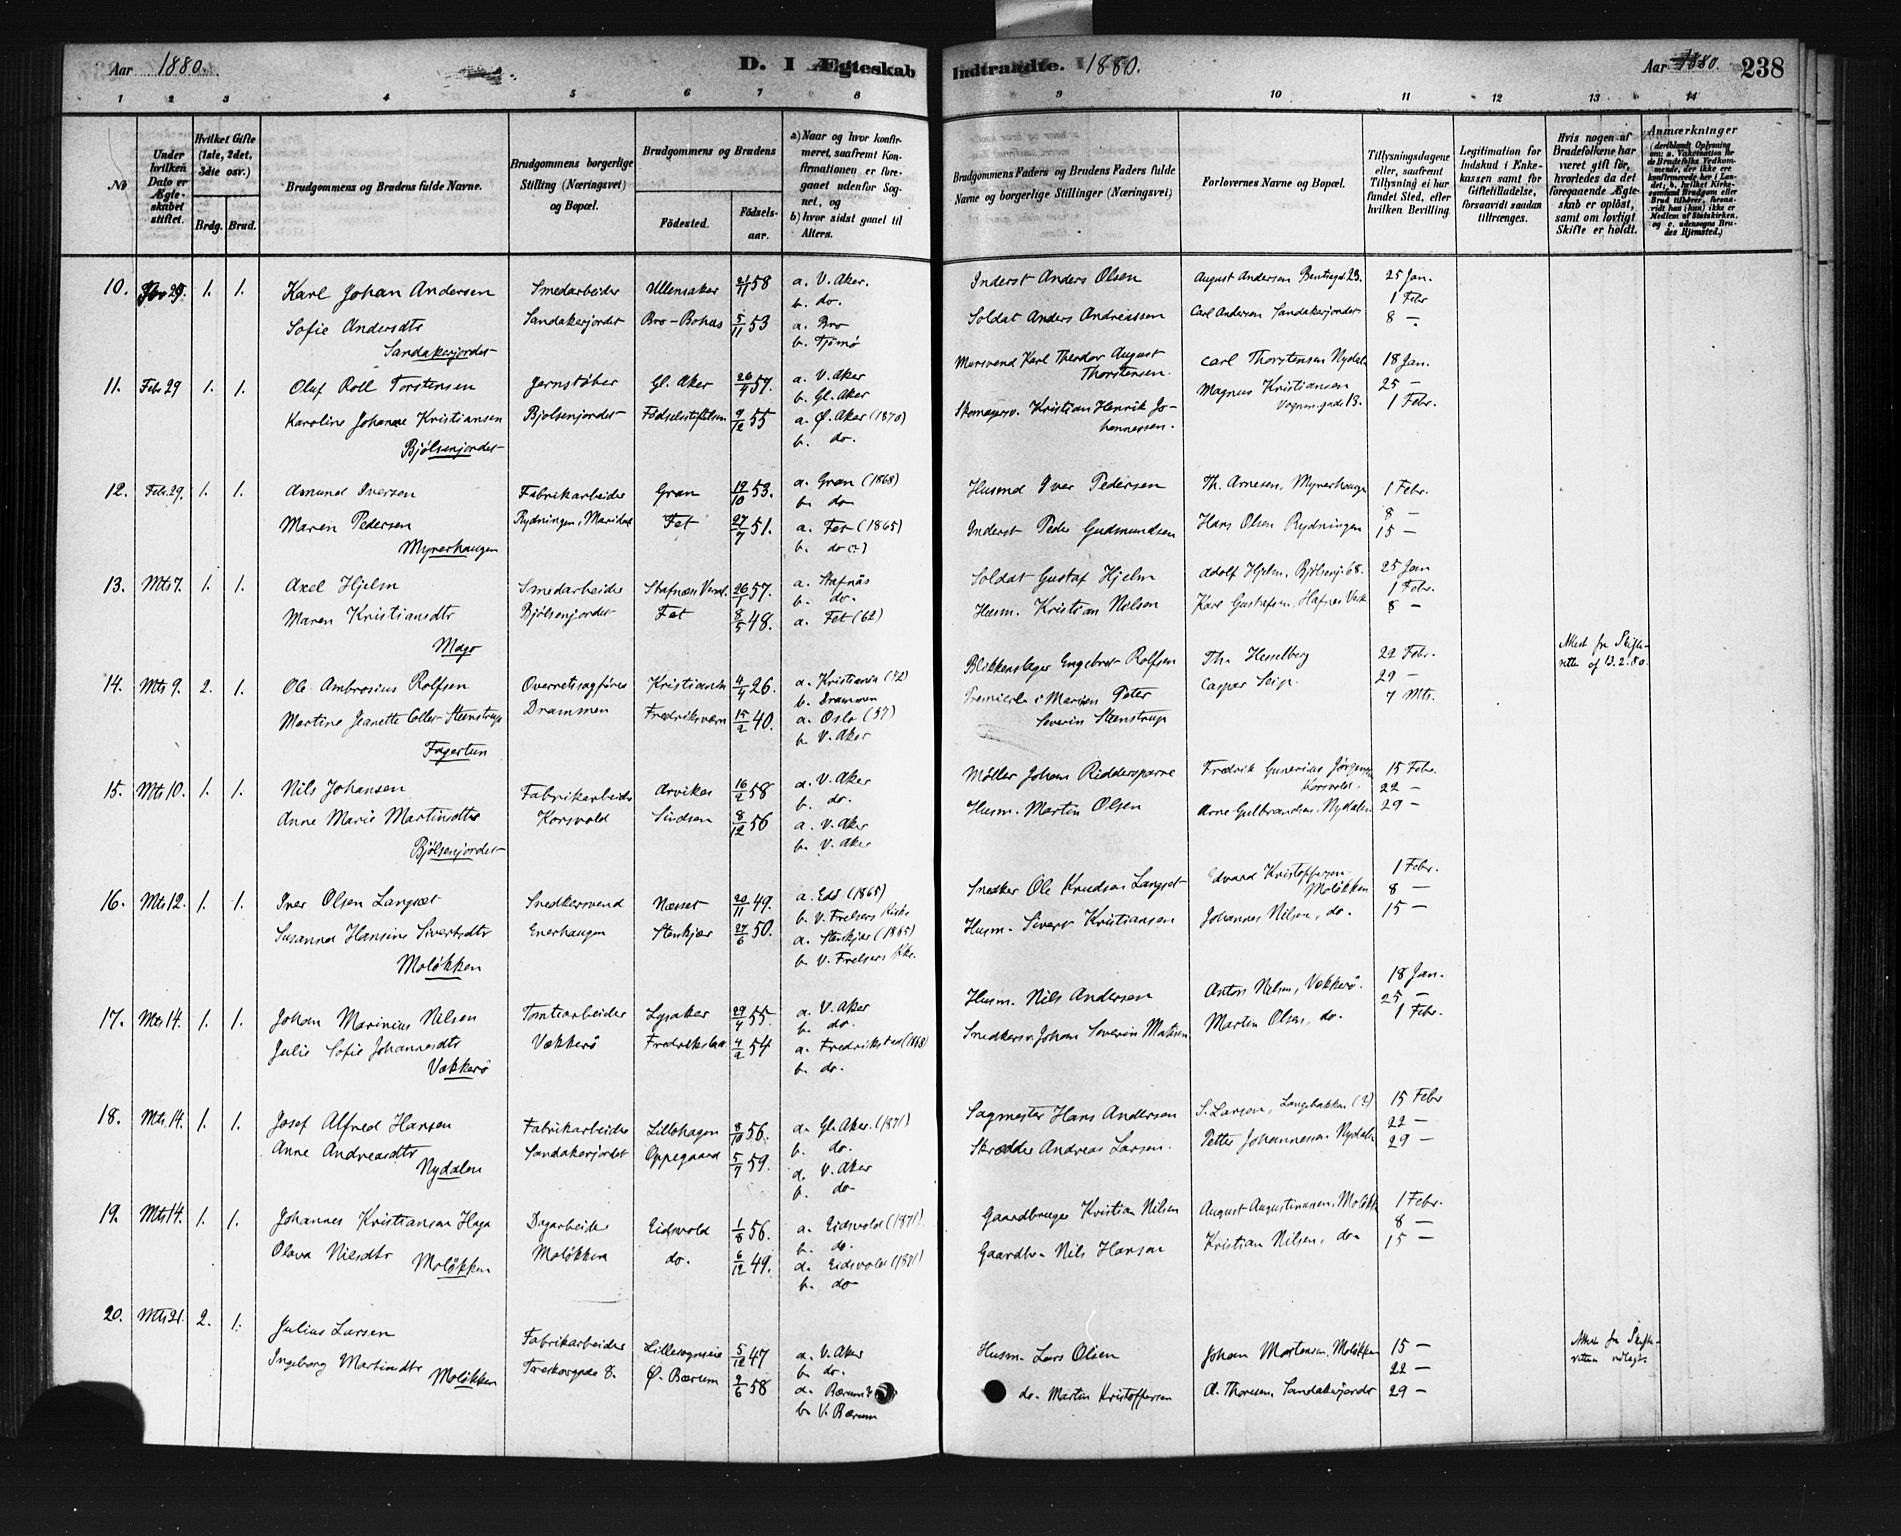 Aar 1880. D. I Ægteskab Indtraadte. 1880. Aar 1880. 238
1 2 3 4 5 6 7 8 9 10 11 12 13 14
No
Under hvilken Dato er Ægteskabet stiftet.
Hvilket Gifte (1ste, 2det, 3die osv.)
Brdg. Brud.
Brudgommens og Brudens fulde Navne.
Brudgommens borgerlige Stilling (Næringsvei) og Bopæl.
Brudgommens og Brudens
Födested. Födselsaar.
a) Naar og hvor konfirmeret, saafremt Konfirmationen er foregaaet udenfor Sognet, og
b) hvor sidst gaaet til Alters.
Brudgommens Faders og Brudens Faders fulde Navne og borgerlige Stillinger (Næringsvei)
Forlovernes Navne og Bopæl.
Tillysningsdagene eller, saafremt Tillysning ei har fundet Sted, efter hvilken Bevilling.
Legitimation for Indskud i Enkekassen samt for Giftetilladelse, forsaavidt saadan tiltrænges.
Hvis nogen af Brudefolkene har været gift før, hvorledes da det foregaaende Ægteskab er opløst, samt om lovligt Skifte er holdt.
Anmærkninger
10. 1. 1. Karl Johan Andersen Smedarbeider Ullensaker 21/11 58 a. V. Aker. Inderst Anders Olsen August Andersen 25 Jan.
b. do. 1 Febr
Sofie Andersdtr Sandakerjordet Bro-Bohus 5/11 53 a. Bro Soldat Anders Andreassen Carl Andersen Sandakerjordet 8 —
Sandakerjordet b. Tjømø
11. Febr 29 1. 1. Oluf Roll Torstensen Jernstøber Gl. Aker a. V. Aker Mursvend Karl Theodor August Thorstensen. Carl Thorstensen Nydalen 18 Jan.
b. Gl. Aker Magnus Kristiansen 25 —
Karoline Johanne Kristiansen Bjølsenjordet Fødselsstiftelsen 9/12 55 a. Ø. Aker (1870) Skomagersv. Kristian Henrik Johannessen. Vognmgade 13. 1 Febr.
Bjølsenjordet b. do.
12. Febr. 29. 1. 1. Amund Iversen Fabrikarbeider Gran 19/10 53. a. Gran (1868) Husmd Iver Pedersen Th. Arnesen, Myrerhaugen 1 Febr.
b. do 8 —
Maren Pedersen Rydningen, Maridal Fet 27/7 51. a. Fet (1865) Inderst Peder Gudmundsen Hans Olsen Rydningen 15 —
Myrerhaugen b. do (?)
13. Mts 7. 1. 1. Axel Hjelm Smedarbeider Stafnæs Verml. 26/1 57. a. Stafnäs Soldat Gustaf Hjelm Adolf Hjelm, Bjølsenj. 68. 25 Jan
b. do. 1 Febr.
Maren Kristiansdtr Bjølsenjordet Fet 8/5 48. a. Fet (62) Husm. Kristian Nilsen Karl Gustafsen, 8 —
Mago
14. Mts 9. 2. 1. Ole Ambrosius Rolfsen Overretssagfører Kristiania 4/4 26. a. Kristiania (42) Blikkenslager Engebret Rolfsen Th. Hesselberg 22 Febr. Attest fra Skifteretten af 13.2.80.
b. Drammen 29 —
Martine Jeanette Coller Steenstrup Drammen Fredriksværn 15/2 40. a. Oslo (57) Premierl. i Marinen Peter Severin Steenstrup Caspar Seip. 7 Mts.
Fagertun b. V. Aker
15. Mts 10. 1. 1. Nils Johansen Fabrikarbeider Arvika 16/2 58 a. V. Aker Møller Johan Riddersparre Fredrik Gunerius Jørgensen Korsvold. 15 Febr.
b. do. 22 —
Anne Marie Martinsdtr Korsvold 8/12 56 a. V. Aker Husm. Martin Olsen Arne Gulbrandsen, Nydalen 29 —
Bjølsenjordet b. V. Aker
16. Mts 12. 1. 1. Iver Olsen Langset Snedkersvend Næsset 20/11 49. a. Eds (1865) Snedker Ole Knudsen Langset Edvard Kristoffersen Moløkken 1 Febr.
b. V. Frelsers Kirke 8 —
Susanna Hansine Sivertsdtr Enerhaugen Stenkjær 27/6 50. a. Stenkjær (1865) Husm. Sivert Kristiansen Johannes Nilsen, do. 15 —
Moløkken b. V. Frelsers Kke.
17. Mts 14. 1. 1. Johan Marinius Nilsen Tomtearbeider Lysaker 29/4 55. a. V. Aker Husm. Nils Andersen Anton Nilsen, Vækkerø. 18 Jan.
b. do. 25 —
Julie Sofie Johannesdtr Vækkerø 4/2 54 a. Fredrikstad (1868) Snedkersv. Johan Severin Martin Olsen, do. 1 Febr.
Vækkerø b. do.
18. Mts. 14. 1. 1. Josef Alfred Hansen Fabrikarbeider Lillehagen 8/10 56. a. Gl. Aker. (1871) Sagmester Hans Andersen S. Larsen, Langbakken (?) 15 Febr
b. do. 22 —
Anne Andreasdtr Sandakerjordet Oppegaard 5/7 59. a. V. Aker Skrædder Andreas Larsen. Petter Johannessen Nydalen 29 —
Nydalen b. do
19. Mts 14. 1. 1. Johannes Kristiansen Haga Dagarbeider Eidsvold 1/8 56. a. Eidsvold (1871). Gaardbruger Kristian Nilsen August Augustinusen, Moløkk 1 Febr.
b. do. 8 —
Olava Nilsdtr Moløkken do. 6/12 49. a. Eidsvold (1871) Gaardbr. Nils Hansen Kristian Nilsen, do. 15 —
Moløkken b. do
20. Mts 21. 2. 1. Julius Larsen Fabrikarbeider 5/12 47 a. V. Aker Husm. Lars Olsen Johan Mortensen, Moløkken 15 — Attest fra Skifteretten vedlagt.
b. do. 22 —
Ingeborg Martinsdtr 8. Ø. Bærum 9/6 58 a. Bærum do. Martin Kristoffersen A. Thoresen, Sandakerjordet 29 —
Moløkken b. V. Bærum